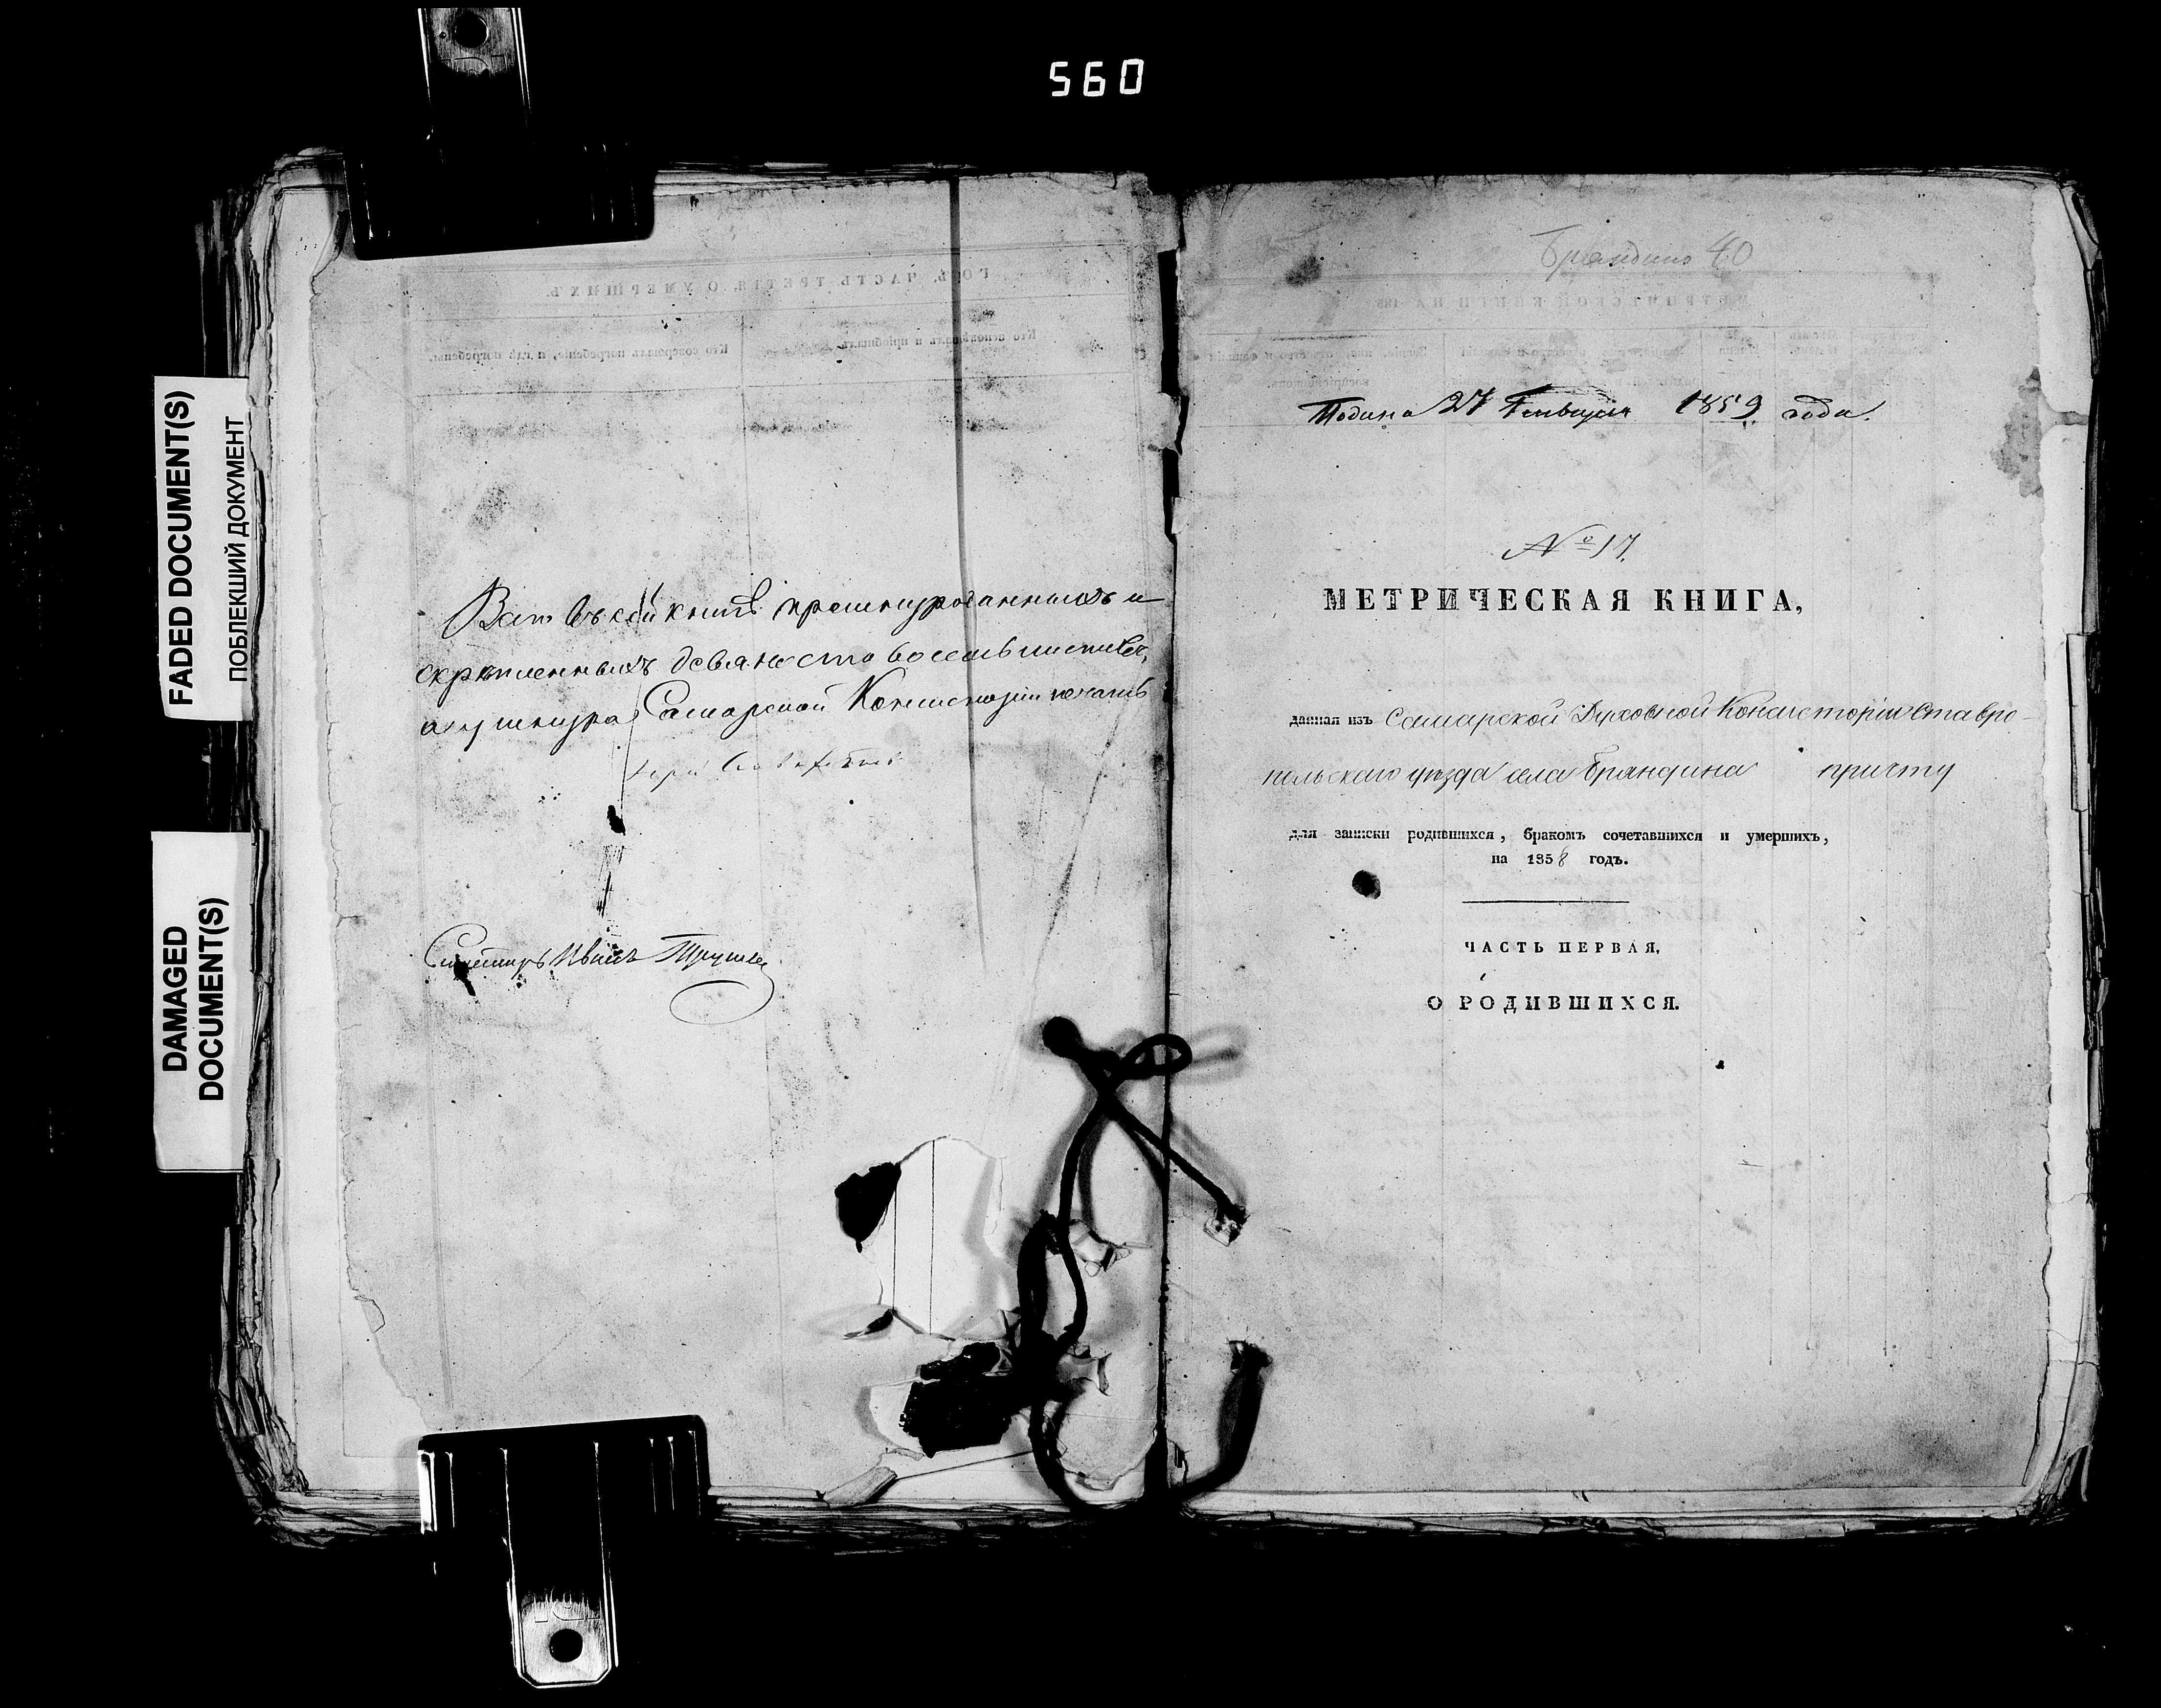 560
FADED DOCUMENT(S)
ПОБЛЕКШИЙ ДОКУМЕНТ
DAMAGED
DOCUMENT(S)
ГОДЪ, ЧАСТЬ ТРЕТІЯ, О УМЕРШИХЪ.
Кто исповѣдывалъ и пріобщалъ.
Кто совершалъ погребеніе, и гдѣ погребены.
въ сей книгѣ прошнурованныхъ и
скрѣпленныхъ девяносто восемь листовъ,
а у шнура Самарской Консисторіи печать
Иванъ
Брандино 40
Подана 27 Генваря 1859 года.
№ 17.
МЕТРИЧЕСКАЯ КНИГА,
данная изъ Самарской Духовной Консисторіи Ставро-
польскаго уѣзда села Брандина причту
для записки родившихся, бракомъ сочетавшихся и умершихъ,
на 1858 годъ.
ЧАСТЬ ПЕРВАЯ,
О РОДИВШИХСЯ.